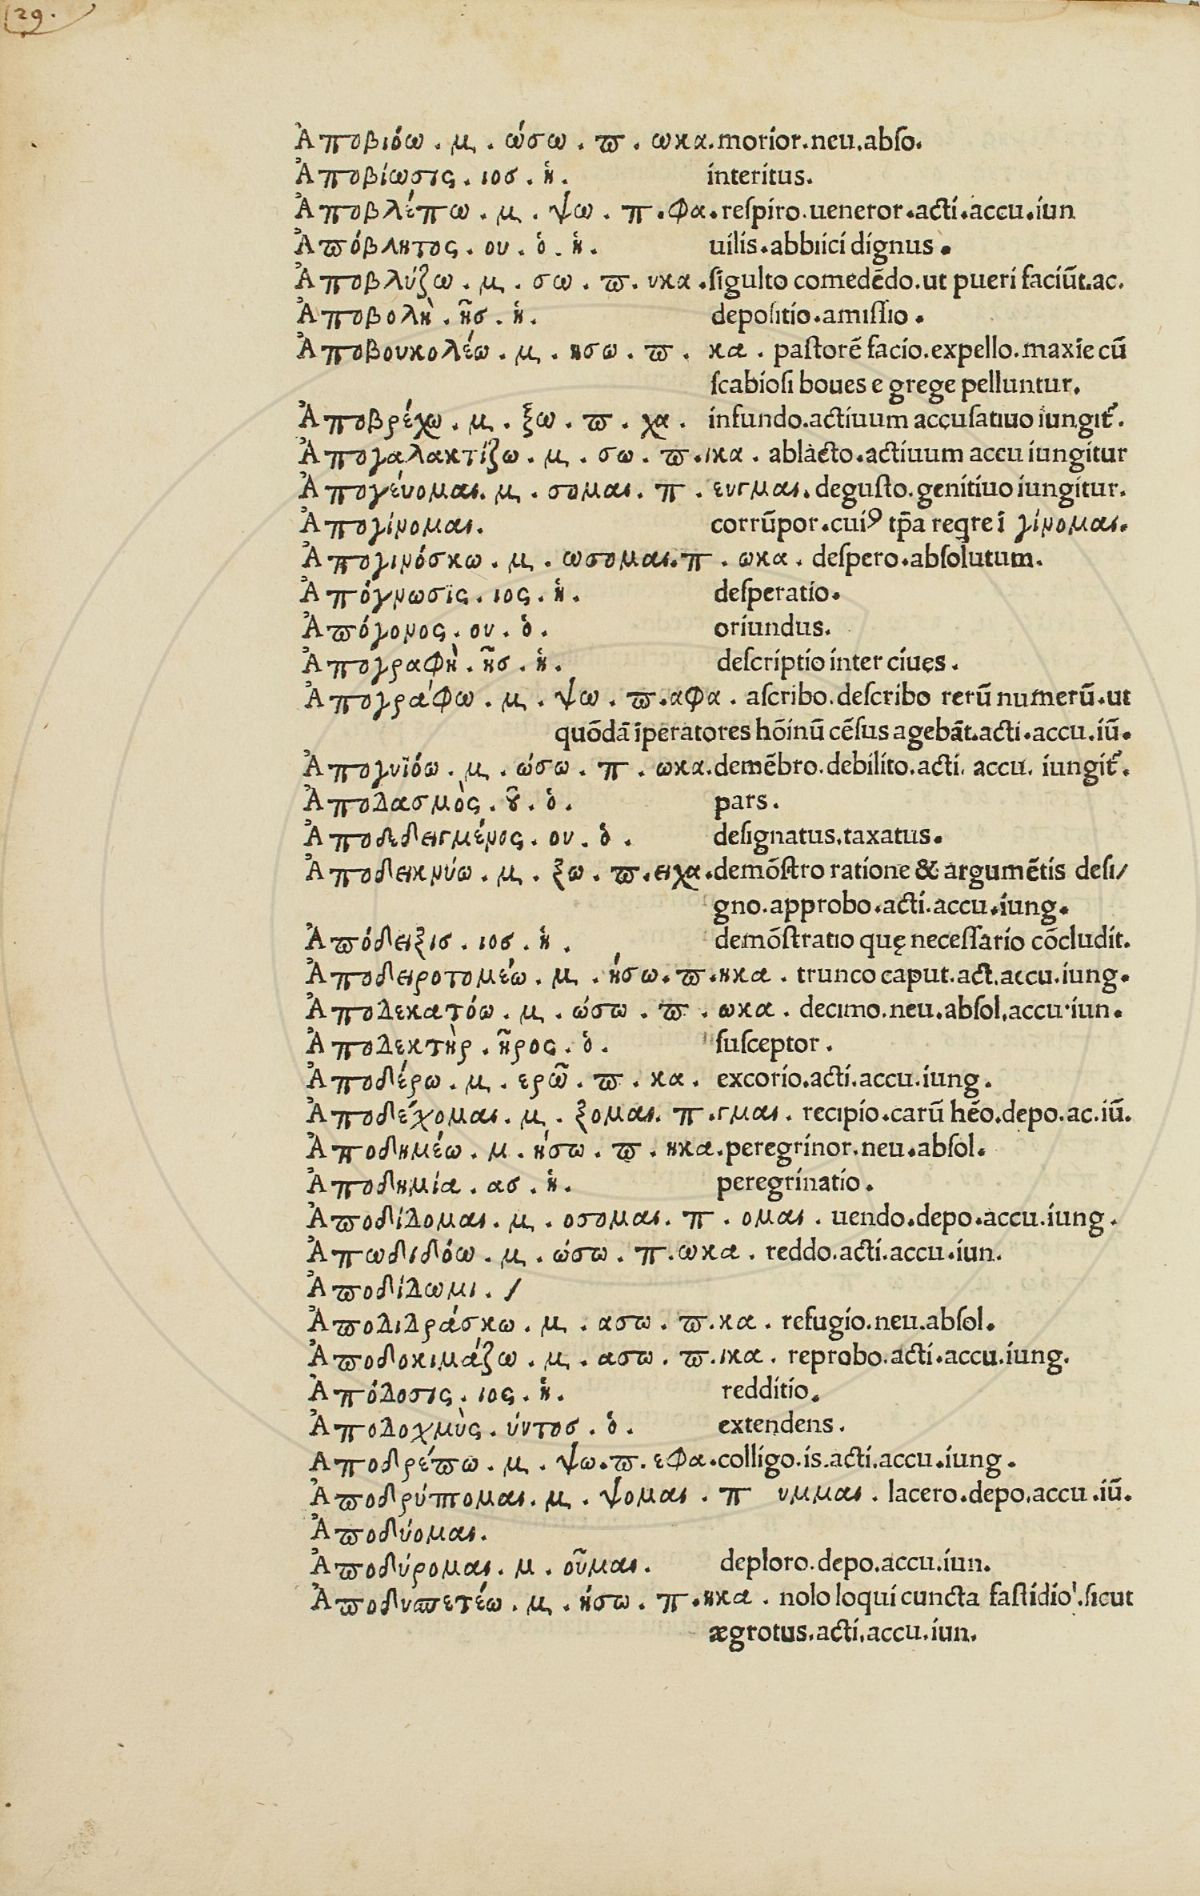 29.
Ἀποβιόω. μ. ώσω. π. ωκα. morior. neu. abso.
Ἀποβίωσις. ιοσ. ἡ. interitus.
Ἀποβλέπω. μ. ψω. π. φα. respiro. ueneror. acti. accu. iun
Ἀπόβλητος. ου. ὁ. ἡ. uilis. abbiici dignus.
Ἀποβλύζω. μ. σω. π. υκα. sigulto comedēdo. ut pueri faciūt. ac.
Ἀποβολὴ. ῆσ. ἡ. depositio. amissio.
Ἀποβουκολέω. μ. ησω. π. κα. pastorē facio. expello. maxīe cū
scabiosi boues e grege pelluntur.
Ἀποβρέχω. μ. ξω. π. χα. infundo. actiuum accusatiuo iungit᷑.
Ἀπογαλακτίζω. μ. σω. π. ικα. ablacto. actiuum accu iungitur
Ἀπογένομαι. μ. σομαι. π. ευγμαι. degusto. genitiuo iungitur.
Ἀπογίνομαι. corrūpor. cuiꝰ tp̄a reqre ī γίνομαι.
Ἀπογινόσκω. μ. ωσομαι. π. ωκα. despero. absolutum.
Ἀπόγνωσις. ιος. ἡ. desperatio.
Ἀπόγονος. ου. ὁ. oriundus.
Ἀπογραφὴ. ῆσ. ἡ. descriptio inter ciues.
Ἀπογράφω. μ. ψω. π. αφα. ascribo. describo rerū numerū. ut
quōdā īperatores hōinū cēsus agebāt. acti. accu. iū.
Ἀπογυϊόω. μ. ώσω. π. ωκα. demēbro. debilito. acti. accu. iungit᷑.
Ἀποδασμὸς. οῦ. ὁ. pars.
Ἀποδεδειγμένος. ου. ὁ. designatus. taxatus.
Ἀποδεικνύω. μ. ξω. π. ειχα. demōstro ratione & argumētis desi/
gno. approbo. acti. accu. iung.
Ἀπόδειξισ. ιοσ. ἡ. demōstratio quę necessario cōcludit.
Ἀποδειροτομέω. μ. ήσω. π. ηκα. trunco caput. act. accu. iung.
Ἀποδεκατόω. μ. ώσω. π. ωκα. decimo. neu. absol. accu. iun.
Ἀποδεκτὴρ. ῆρος. ὁ. susceptor.
Ἀποδέρω. μ. ερῶ. π. κα. excorio. acti. accu. iung.
Ἀποδέχομαι. μ. ξομαι. π. γμαι. recipio. carū hēo. depo. ac. iū.
Ἀποδημέω. μ. ήσω. π. ηκα. peregrinor. neu. absol.
Ἀποδημία. ασ. ἡ. peregrinatio.
Ἀποδίδομαι. μ. οσομαι. π. ομαι. uendo. depo. accu. iung.
Ἀπωδιδόω. μ. ώσω. π. ωκα. reddo. acti. accu. iun.
Ἀποδίδωμι. /
Ἀποδιδράσκω. μ. ασω. π. κα. refugio. neu. absol.
Ἀποδοκιμάζω. μ. ασω. π. ικα. reprobo. acti. accu. iung.
Ἀπόδοσις. ιος. ἡ. redditio.
Ἀποδοχμὺς. ύντοσ. ὁ. extendens.
Αποδρέπω. μ. ψω. π. εφα. colligo. is. acti. accu. iung.
Ἀποδρύπτομαι. μ. ψομαι. π υμμαι. lacero. depo. accu. iū.
Ἀποδύομαι.
Ἀποδύρομαι. μ. οῦμαι. deploro. depo. accu. iun.
Ἀποδυσπετέω. μ. ήσω. π. ηκα. nolo loqui cuncta fastidio'. sicut
ægrotus. acti. accu. iun.